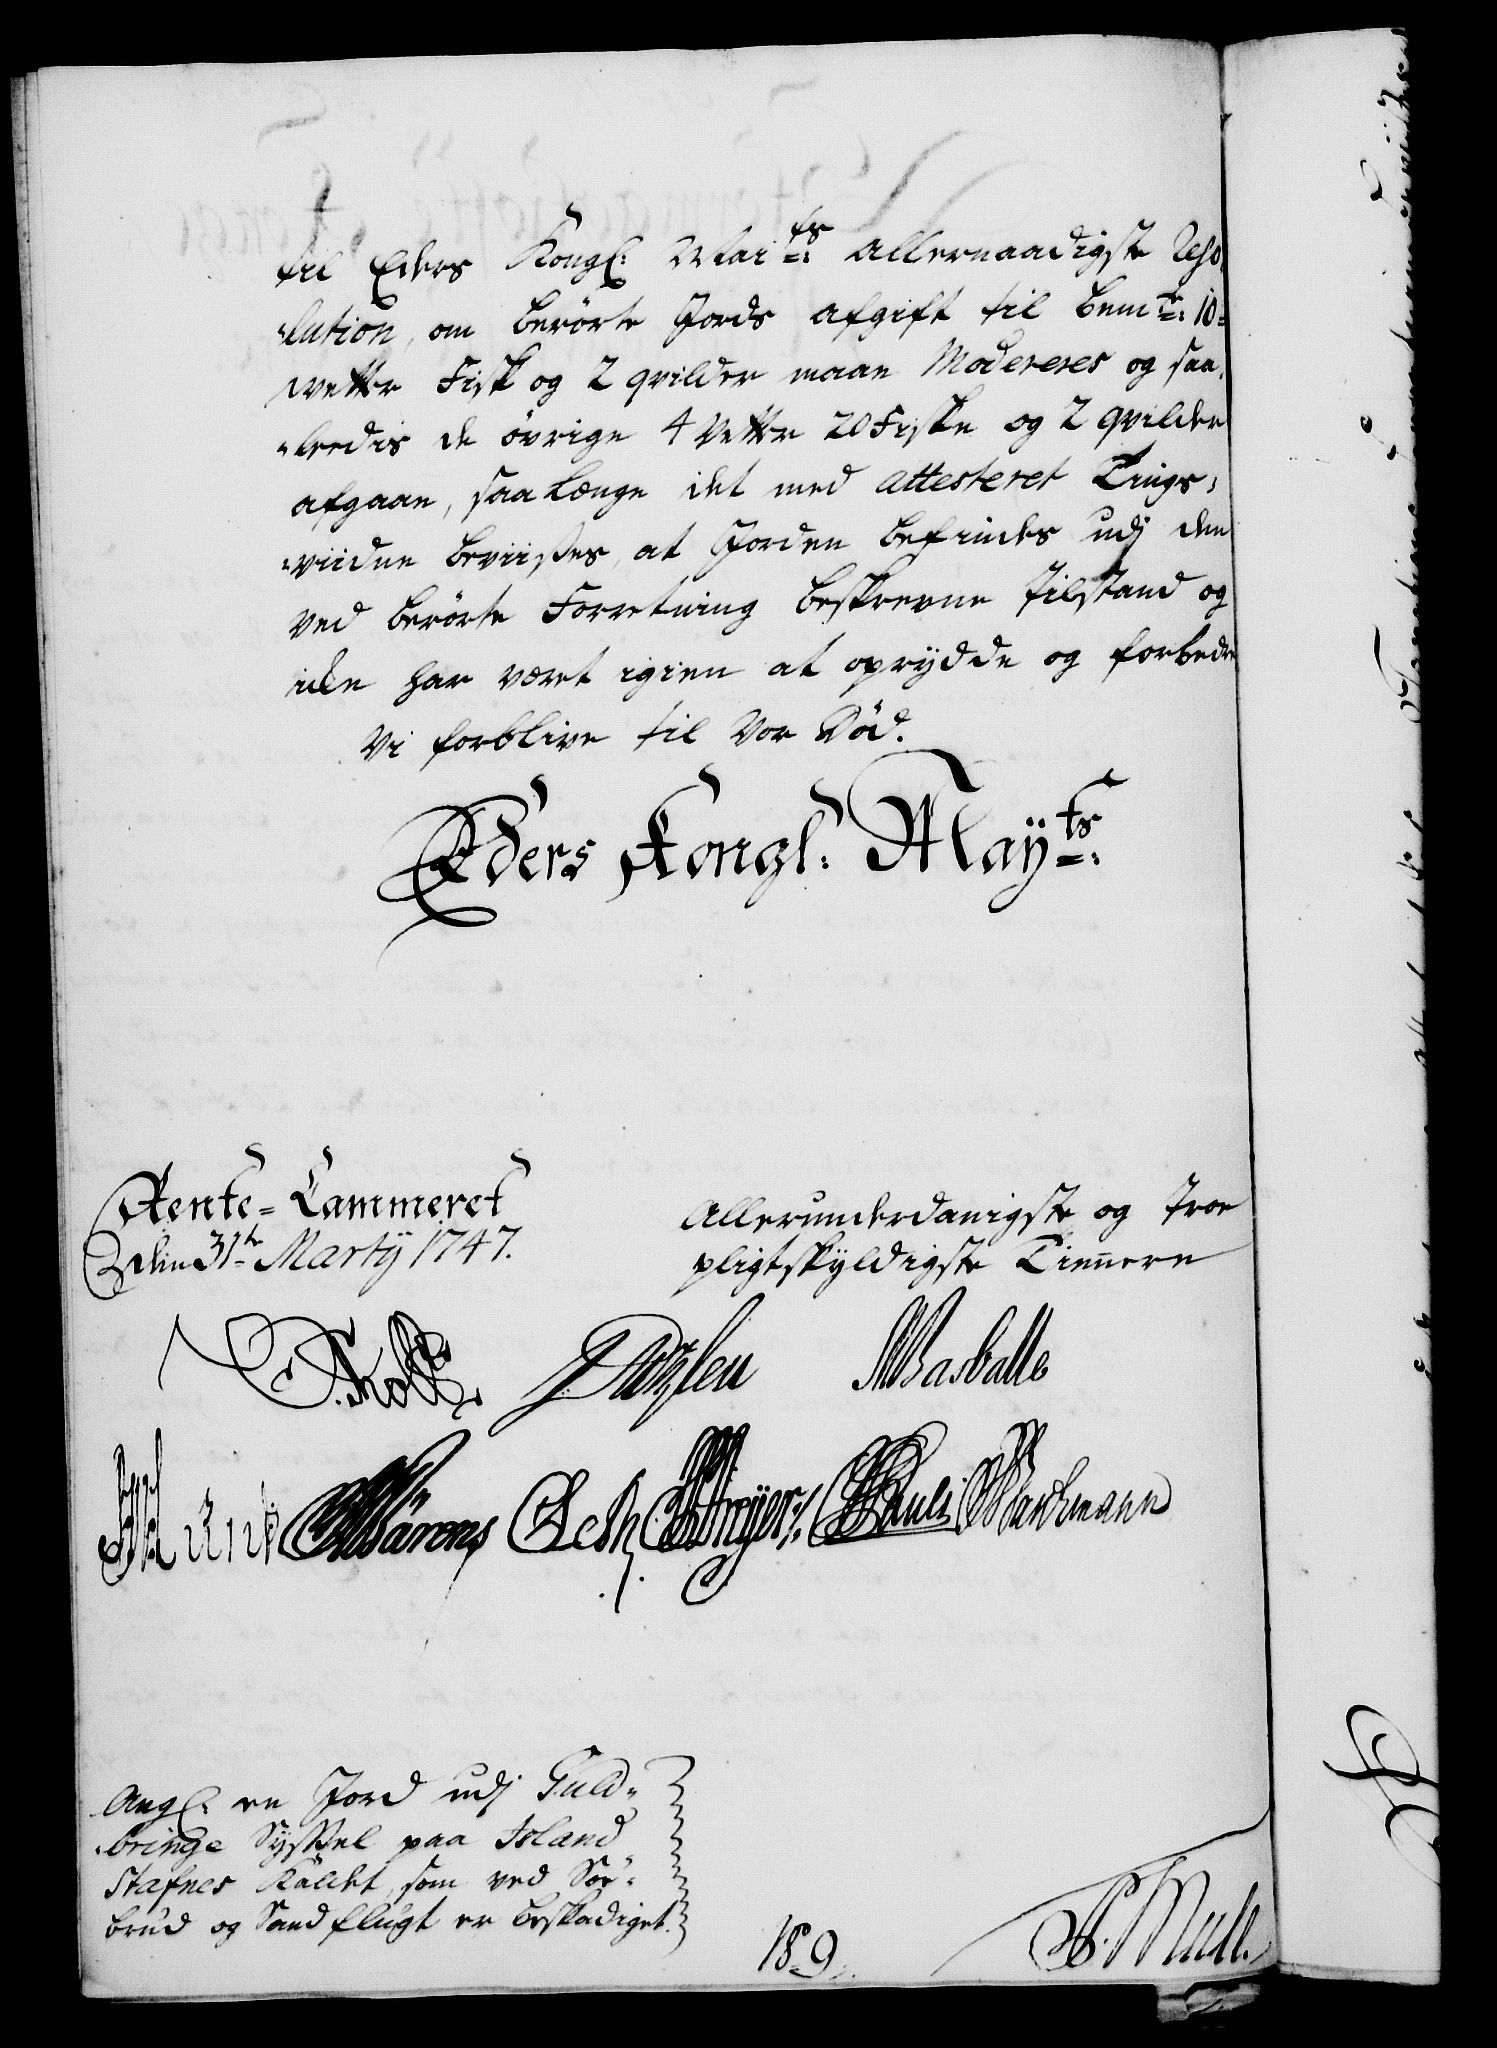 til Eders Kongl: Maits: allernaadigste Reso-
-lution, om berörte Jords afgift til bemte: 10-
wetter Fisk og 2 qvilder maae Modereres og saa-
-ledis de övrige 4 Vetter 20 Fiske og 2 qvilder
afgaae, saa længe det med attesteret Tings-
-viidne beviises, at Jorden befindes udj den
ved berörte Forretning beskrevne tilstand og
ike har været igien at oprydde og forbedre
Vi forblive til Vor Död.
Eders Kongl: Mayts:
Rente-Cammeret
den 31te Martÿ 1747.
Allerunderdanigste og troe
pligtskyldigste Tiennere
Wasballe
Pauli Wartmann
Angl: en Jord udj Guld-
-bringe Syssel paa Island
Stafnes kaldet, som ved Söe-
brud og Sandflugt er beskadiget.
189.